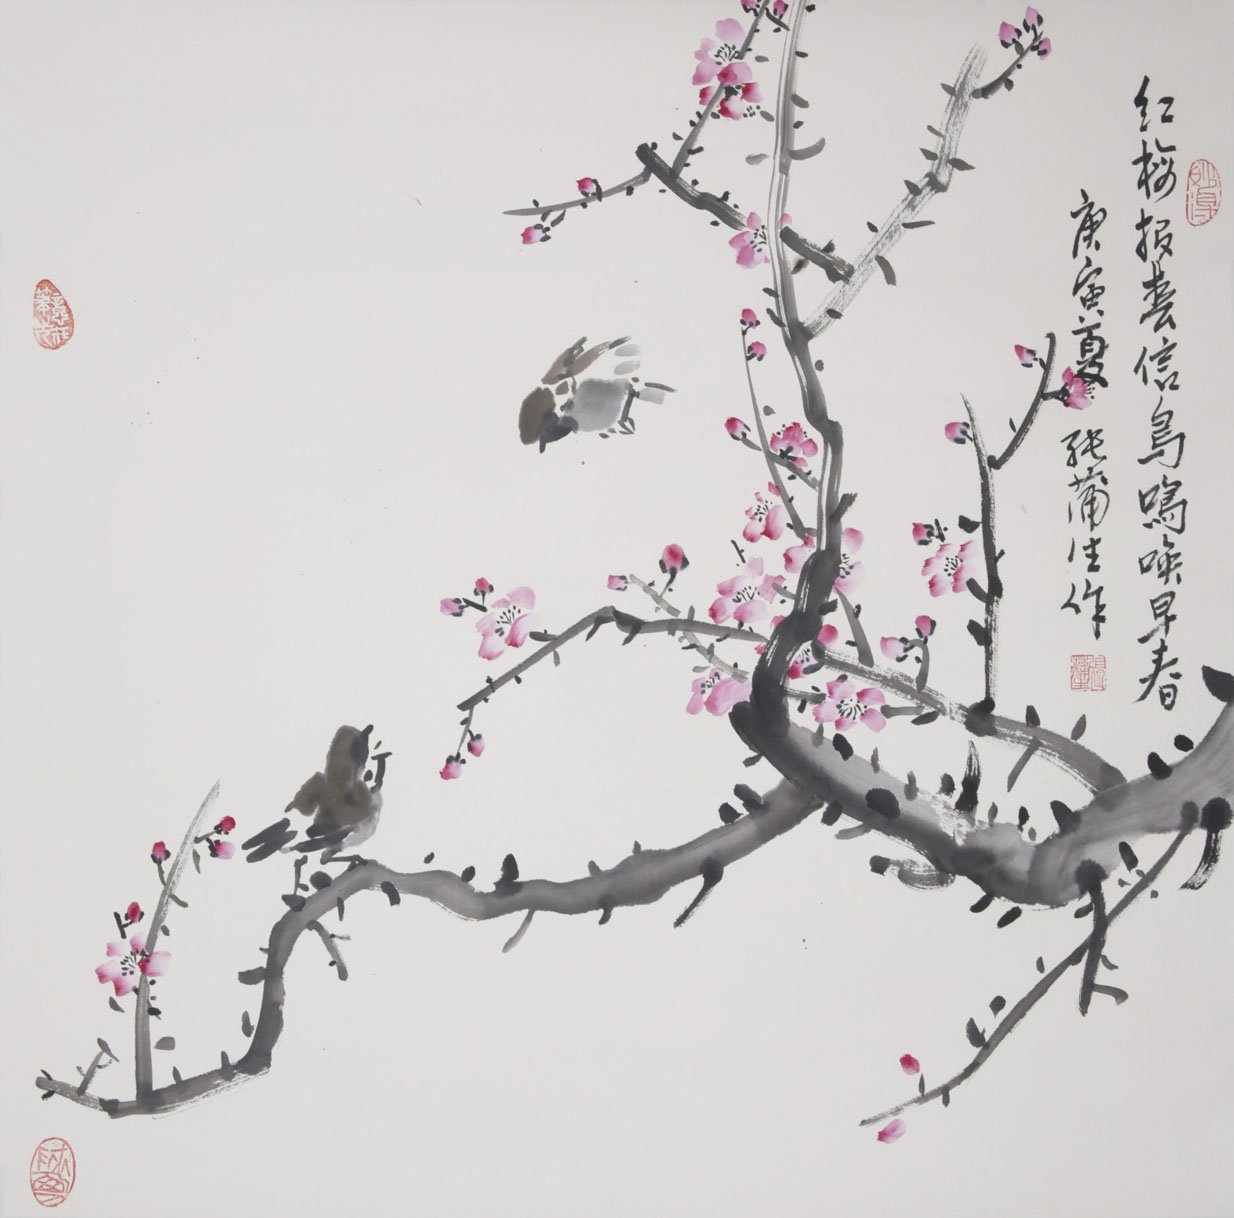 红梅报春信鸟鸣唤早春
庚寅夏张蒲生作